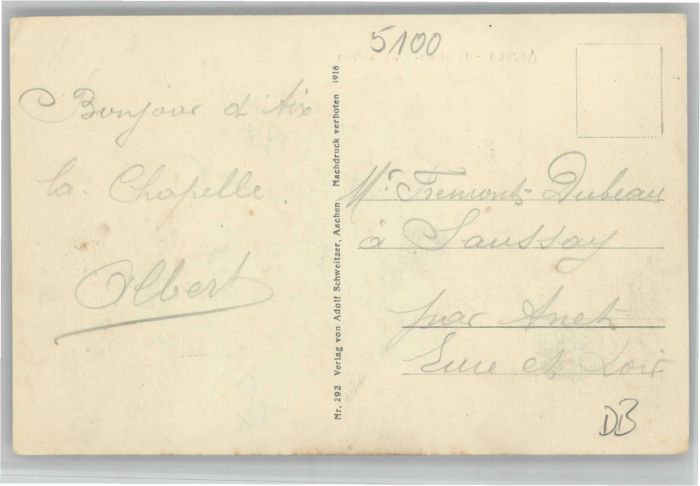 5100
Bonjour d Aix
la Chapelle
Albert
Nr. 292 Verlag von Adolf Schweitzer, Aachen Nachdruck verboten 1916
Mr Fremont-Dubeau
à Saussay
par Anet
Eure et Loir
DB